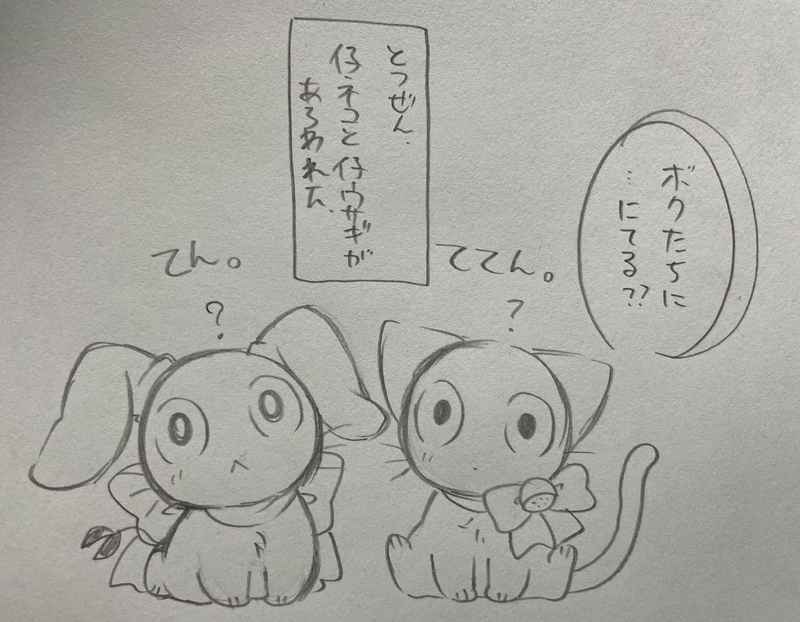 とつぜん、
仔ネコと仔ウサギが
あらわれた。
ボクたちに
…にてる??
ててん。
?
てん。
?